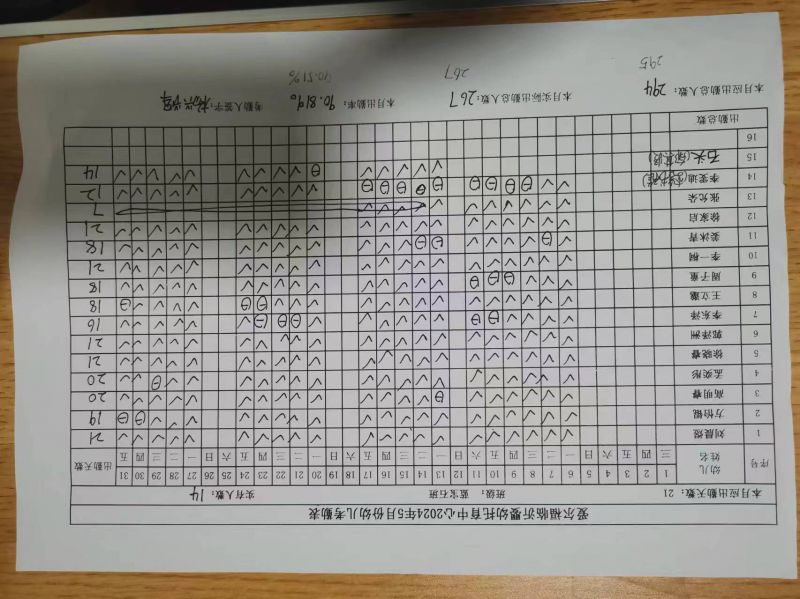 爱尔福临沂婴幼托育中心2024年5月份幼儿考勤表
本月应出勤天数：21 班级：蓝宝石班 实有人数：14
序号 幼儿姓名 1 2 3 4 5 6 7 8 9 10 11 12 13 14 15 16 17 18 19 20 21 22 23 24 25 26 27 28 29 30 31 出勤天数
三 四 五 六 日 一 二 三 四 五 六 日 一 二 三 四 五 六 日 一 二 三 四 五 六 日 一 二 三 四 五
1 刘晨煜 21
2 方怡锟 19
3 高明睿 20
4 孟奕彤 20
5 徐晓睿 21
6 郭泽洲 21
7 李东泽 16
8 王立璇 18
9 周子童 18
10 李一桐 21
11 姜沐青 18
12 徐家启 21
13 张允朵 7
14 李雯迪 12
15 石头 14
16
出勤总数
本月应出勤总人数：294 本月实际出勤总人数：267 本月出勤率：90.81% 考勤人签字：
295 267 90.51%